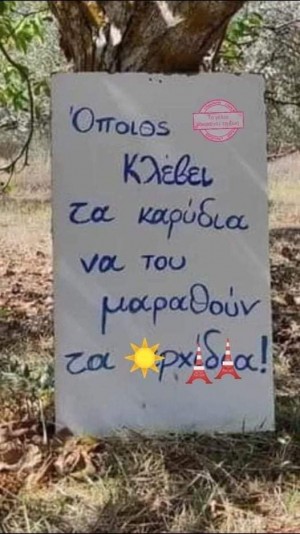 Όποιος
Κλέβει
τα καρύδια
να του
μαραθούν
τα ☀ρχίδια!